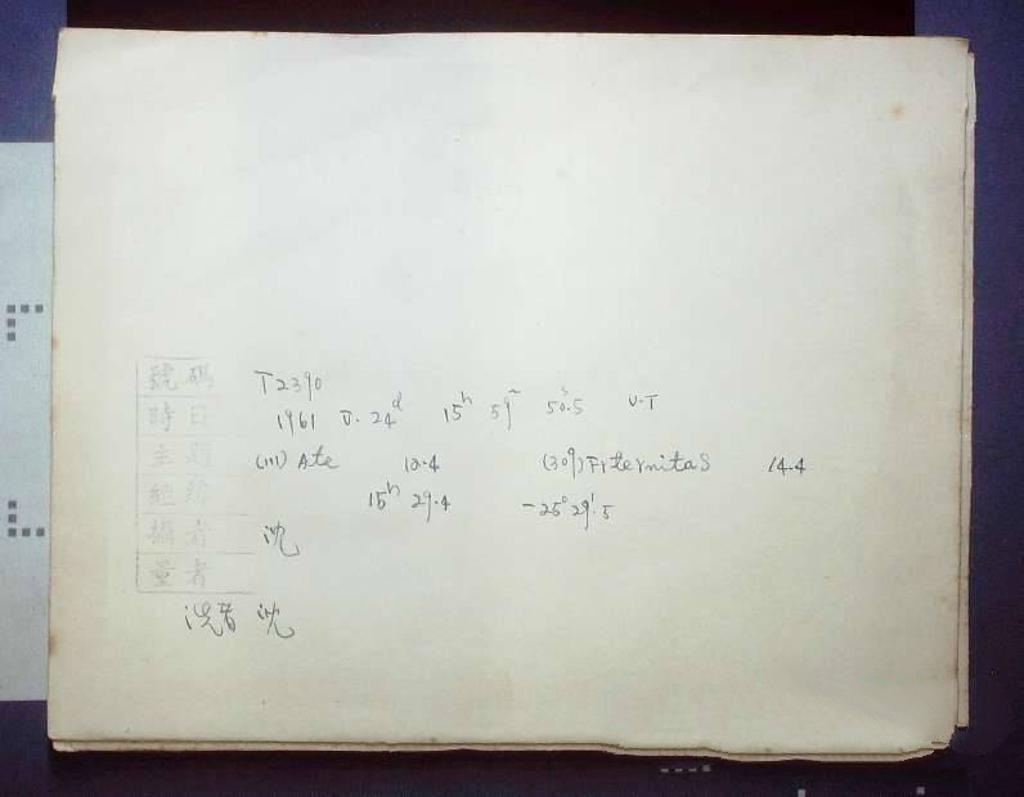 號碼 T2390
時日 1961 V. 24d 15h 59m 50.5s U.T
主題 (111) Ate 12.4 (309) Frternitas 14.4
經緯 15h 29.4 -25° 29'.5
攝者 沈
量者
洗者 沈